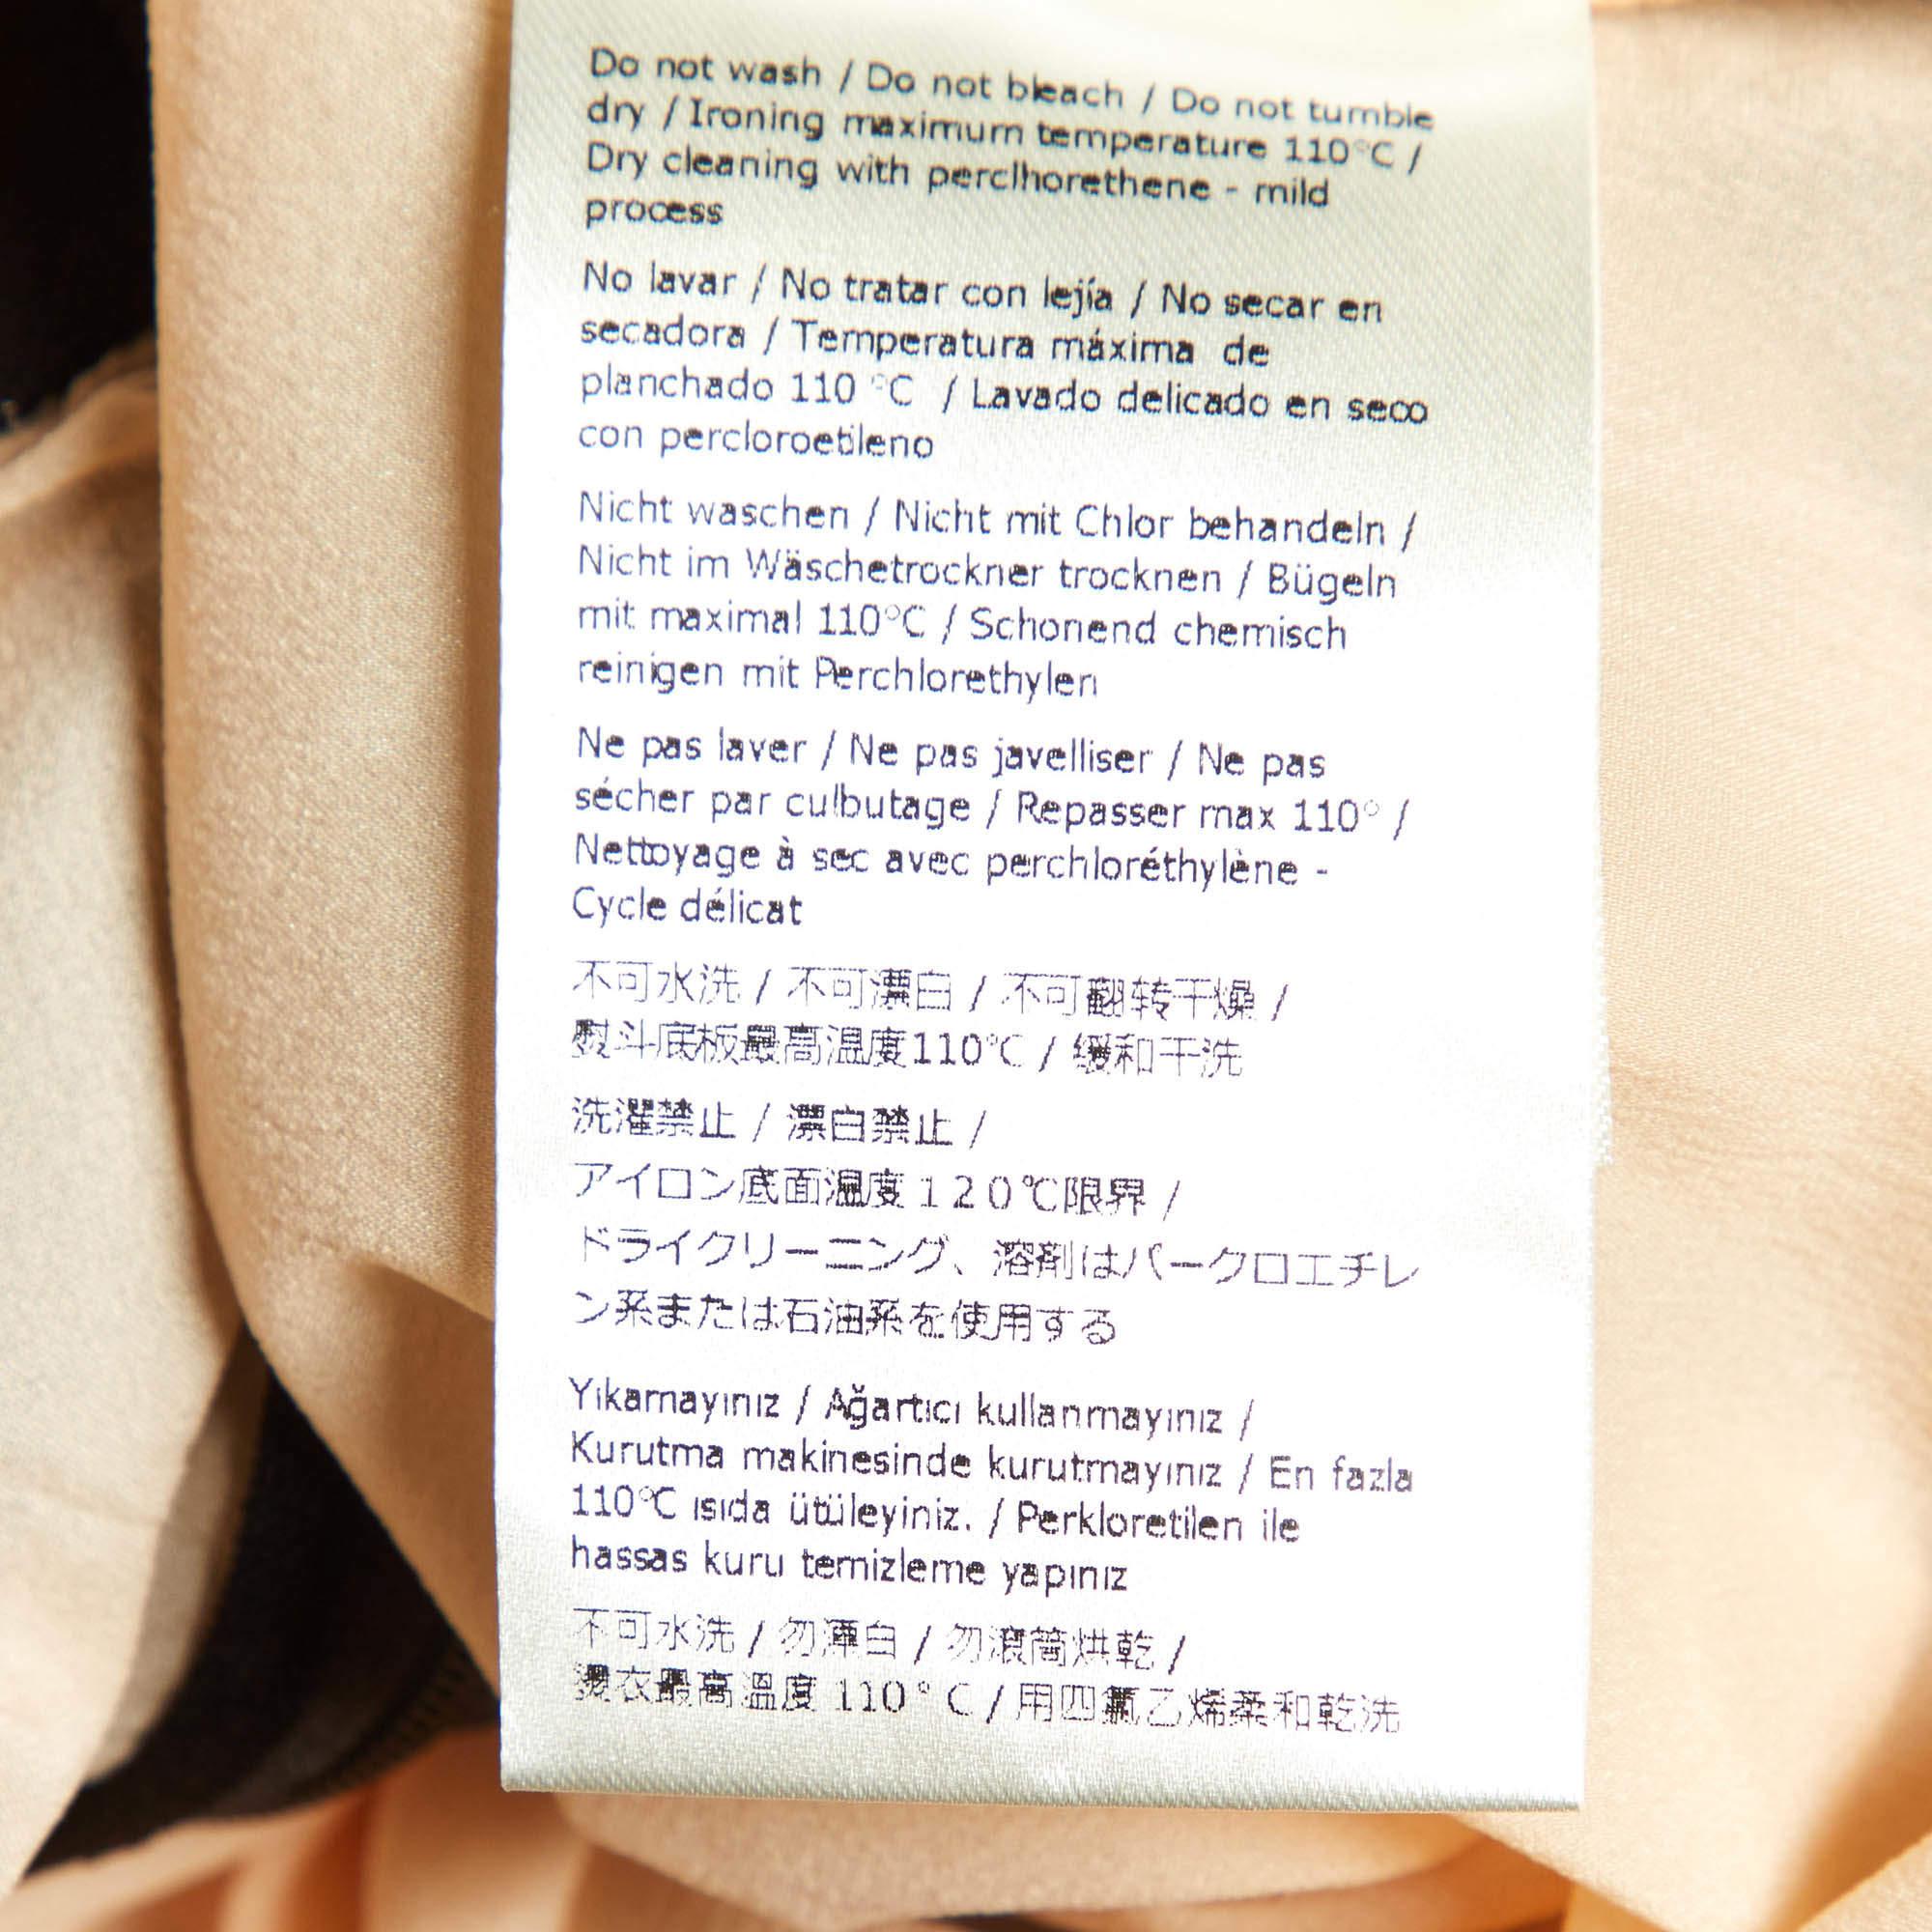 Do not wash / Do not bleach / Do not tumble
dry / Ironing maximum temperature 110°C /
Dry cleaning with perclhorethene - mild
process
No lavar / No tratar con lejía / No secar en
secadora / Temperatura máxima de
planchado 110 °C / Lavado delicado en seco
con percloroetileno
Nicht waschen / Nicht mit Chlor behandeln /
Nicht im Wäschetrockner trocknen / Bügeln
mit maximal 110°C / Schonend chemisch
reinigen mit Perchlorethylen
Ne pas laver / Ne pas javelliser / Ne pas
sécher par culbutage / Repasser max 110° /
Nettoyage à sec avec perchloréthylène -
Cycle délicat
不可水洗 / 不可漂白 / 不可翻转干燥 /
熨斗底板最高温度110°C / 缓和干洗
洗濯禁止 / 漂白禁止 /
アイロン底面温度120℃限界 /
ドライクリーニング、溶剤はパークロエチレ
ン系または石油系を使用する
Yıkamayınız / Ağartıcı kullanmayınız /
Kurutma makinesinde kurutmayınız / En fazla
110°C ısıda ütüleyiniz. / Perkloretilen ile
hassas kuru temizleme yapınız
不可水洗 / 勿漂白 / 勿滾筒烘乾 /
燙衣最高溫度 110° C / 用四氯乙烯柔和乾洗